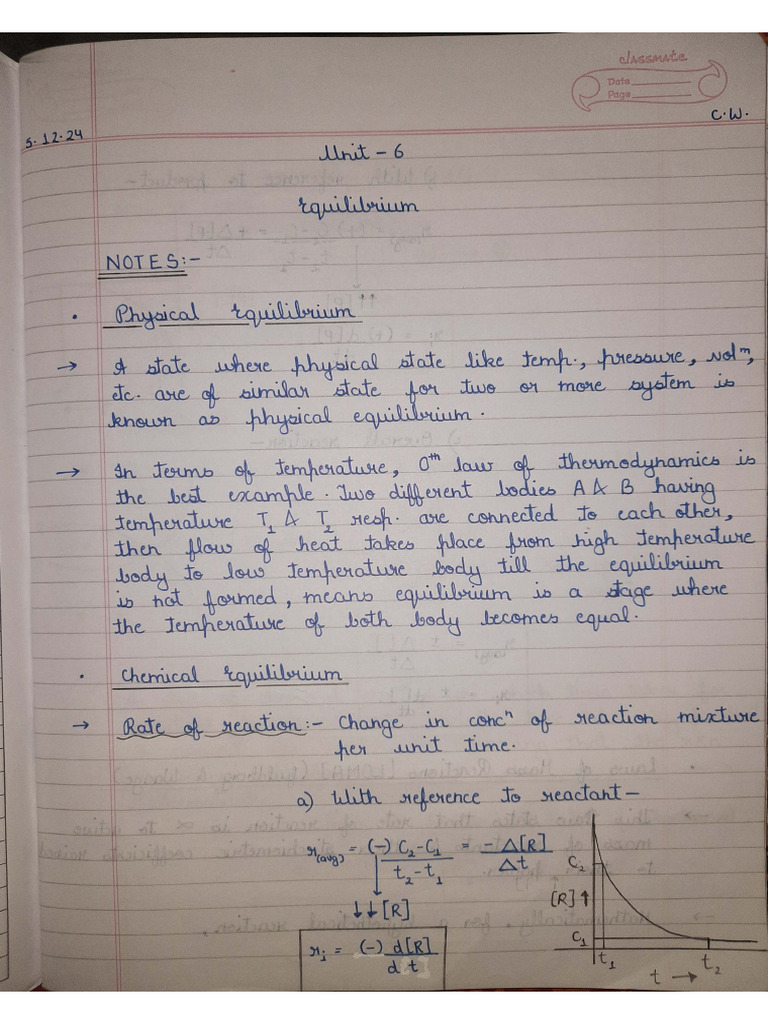 classmate
Date
Page
C.W.
5.12.24
Unit - 6
Equilibrium
NOTES:-
• Physical Equilibrium
→ A state where physical state like temp., pressure, volᵐ,
etc. are of similar state for two or more system is
known as physical equilibrium.
→ In terms of temperature, 0ᵗʰ law of thermodynamics is
the best example. Two different bodies A & B having
temperature T₁ & T₂ resp. are connected to each other,
then flow of heat takes place from high temperature
body to low temperature body till the equilibrium
is not formed, means equilibrium is a stage where
the temperature of both body becomes equal.
• Chemical Equilibrium
→ Rate of reaction:- Change in concⁿ of reaction mixture
per unit time.
a) With reference to reactant -
r(avg) = (-) C₂-C₁ / t₂-t₁ = -Δ[R] / Δt
↓↓[R]
rᵢ = (-) d[R] / dt
C₂
[R]↑
C₁
t₁ t₂
t →